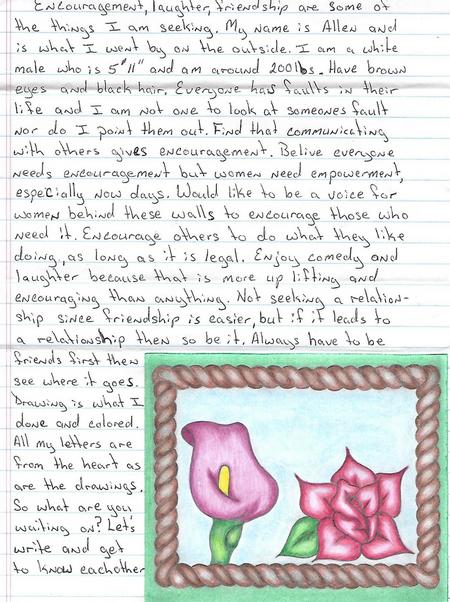 Encouragement, laughter, friendship are some of
the things I am seeking. My name is Allen and
is what I went by on the outside. I am a white
male who is 5'11" and am around 200lbs. Have brown
eyes and black hair. Everyone has faults in their
life and I am not one to look at someones fault
nor do I point them out. Find that communicating
with others gives encouragement. Belive everyone
needs encouragement but women need empowerment,
especially now days. Would like to be a voice for
women behind these walls to encourage those who
need it. Encourage others to do what they like
doing, as long as it is legal. Enjoy comedy and
laughter because that is more up lifting and
encouraging than anything. Not seeking a relation-
ship since friendship is easier, but if it leads to
a relationship then so be it. Always have to be
friends first then
see where it goes.
Drawing is what I
done and colored.
All my letters are
from the heart as
are the drawings.
So what are you
waiting on? Let's
write and get
to know eachother